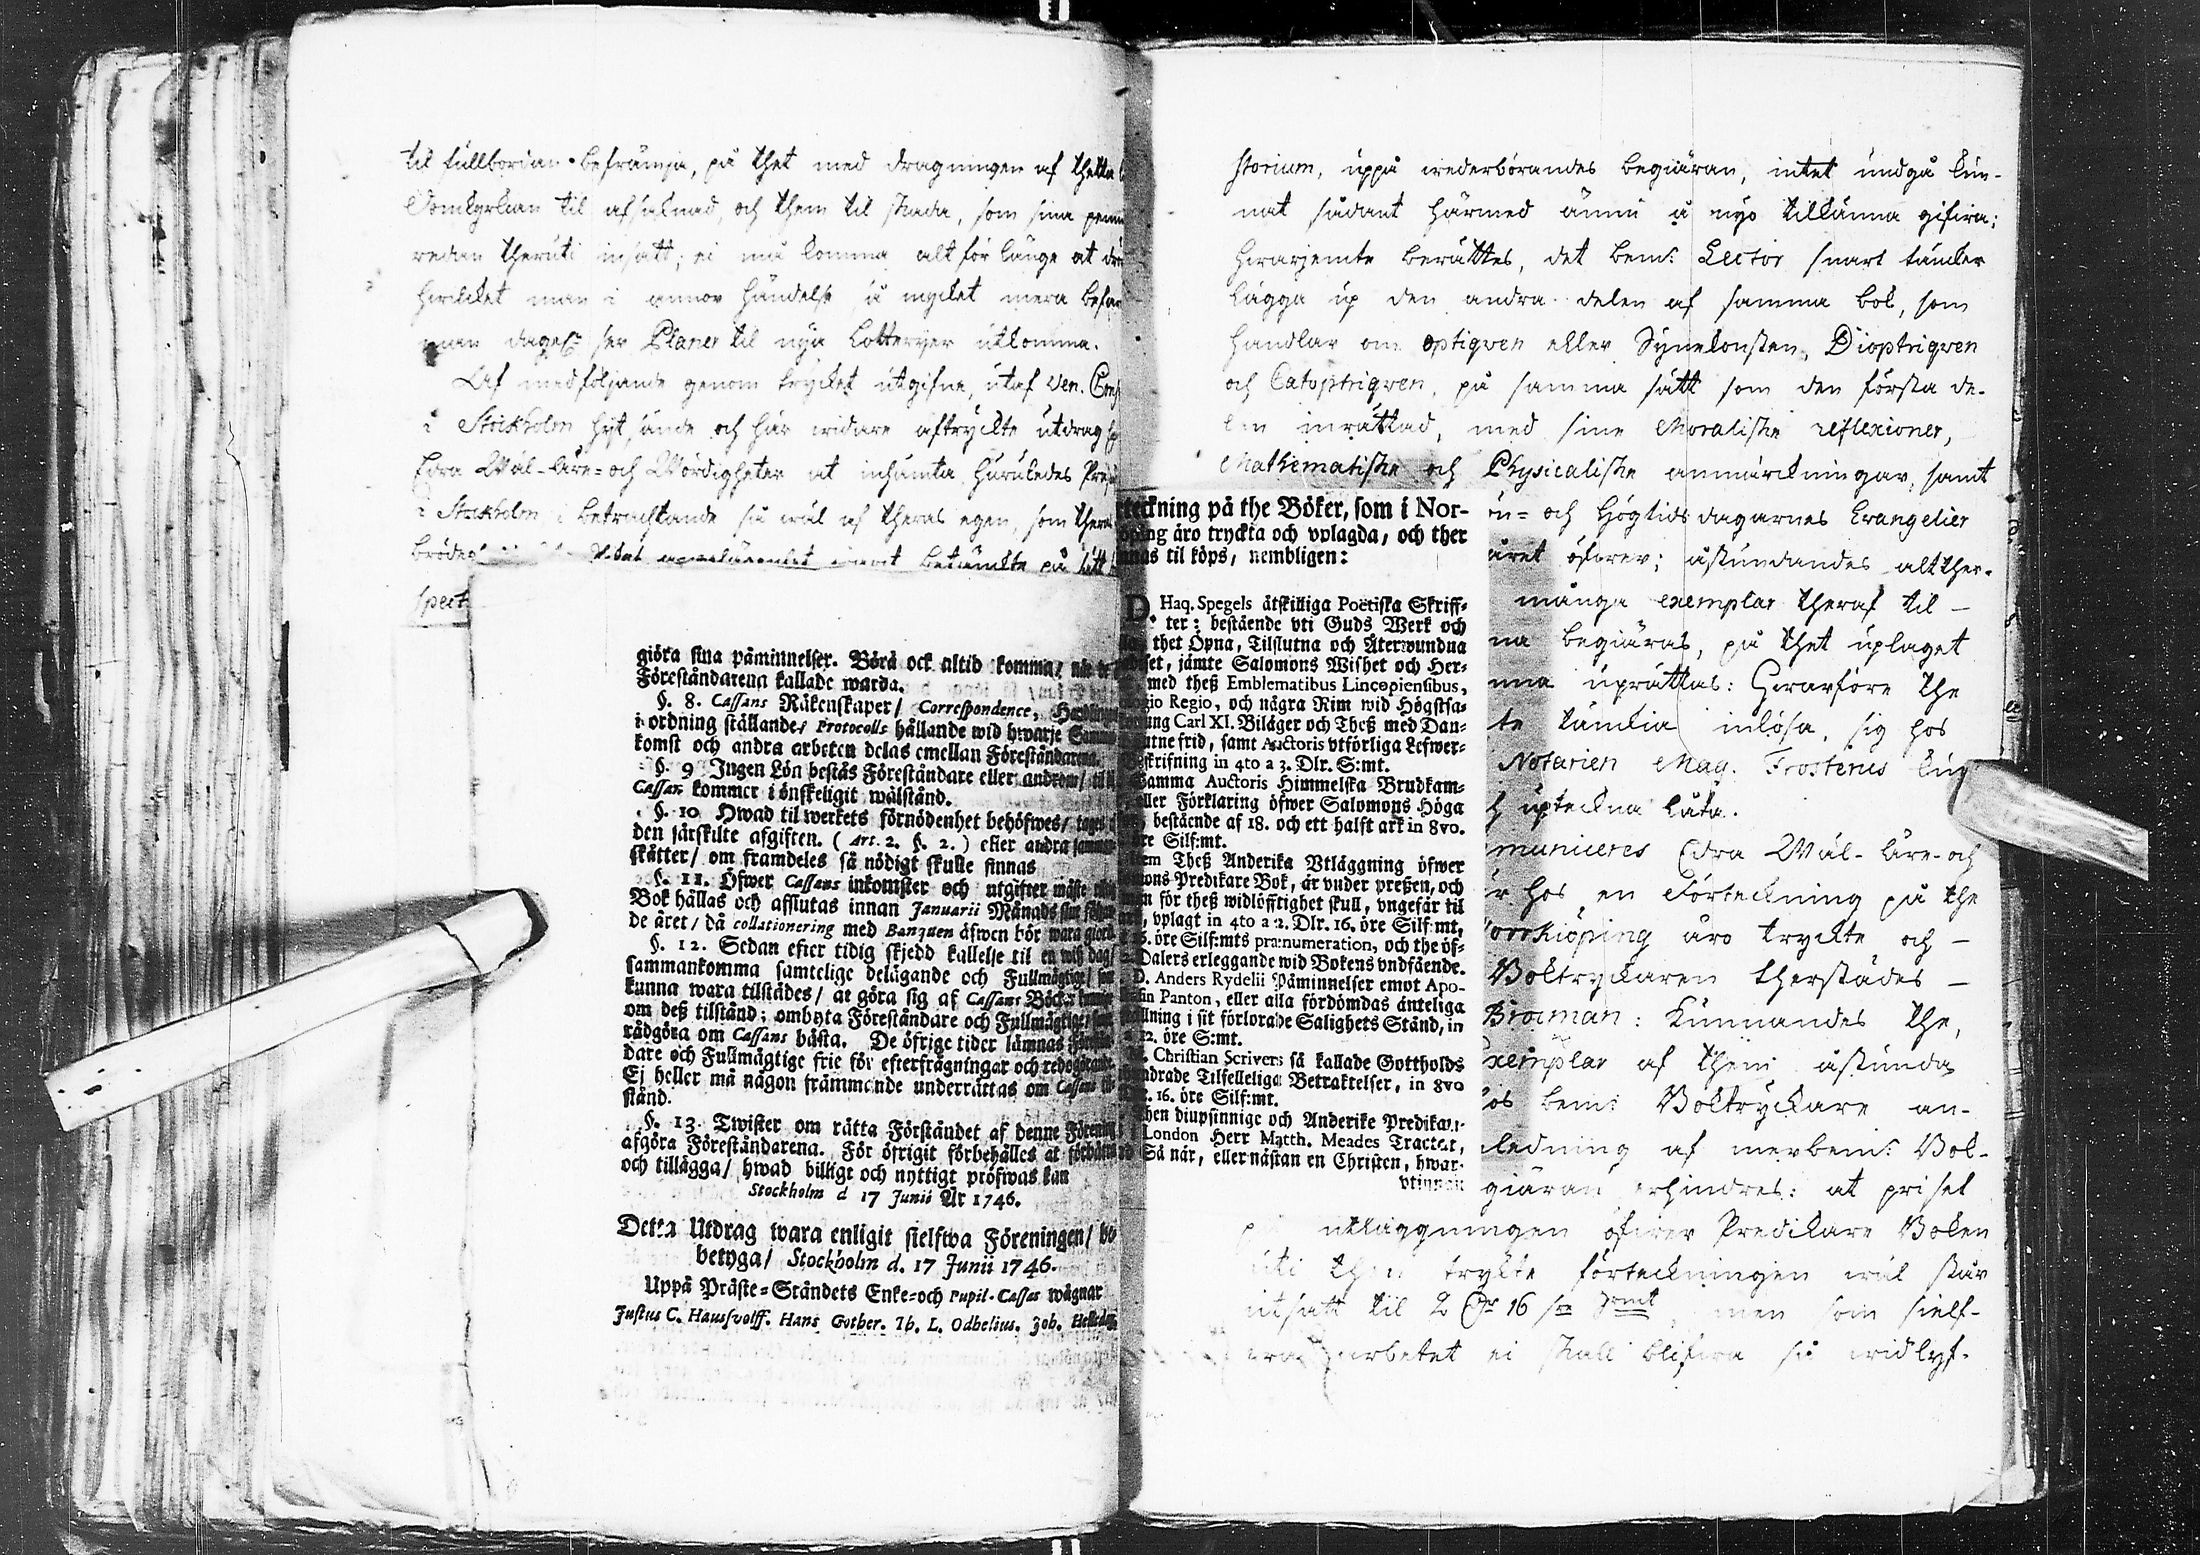 til fullborian befrämja, på thet med dragningen af thetta
Domkyrkian til afsaknad, och them til skada, som sina penn
redan theruti insatt; ei må komma alt för länge at
hwilcket man i annor händelse så mycket mera befar
man dagel. ser Planer til nya Lotteryer utkomma.
Af medföljande genom trycket utgifne, utaf Ven. Cons
i Stockholm hijt sände och här widare aftryckte utdrag
Edra Wäl-Äre- och Wördigheter at inhämta, huruledes
i Stockholm i betrachtande så wäl af theras egen, som theras
betänckte på sätt
spect
giöra sina påminnelser. Böra ock altid komma/ når
Föreståndarena kallade warda.
§. 8. Cassans Räkenskaper/ Correspondence,
i ordning ställande/ Protocolls hållande wid hwarje Samman
komst och andra arbeten delas emellan Föreståndarena.
§. 9 Ingen Lön bestås Föreståndare eller androm/ til
Cassan kommer i önskeligit wälstånd.
§. 10 Hwad til werkets förnödenhet behöfwes/ tages
den särskilte afgiften. ( Art. 2. §. 2. ) eller andra samman
skätter/ om framdeles så nödigt skulle finnas
§. 11. Öfwer Cassans inkomster och utgifter måste
Bok hållas och afslutas innan Januarii Månads slut
de året/ då collationering med Banquen äfwen bör wara giord
§. 12. Sedan efter tidig skjedd kallelse til en wiß dag/
sammankomma samtelige delägande och Fullmägtige/
kunna wara tilstädes/ at göra sig af Cassans Böcker
om deß tilstånd; ombyta Föreståndare och Fullmägtige/
rådgöra om Cassans bästa. De öfrige tider lämnas
dare och Fullmägtige frie för efterfrågningar och
Ej heller må någon främmande underrättas om Cassans
stånd.
§. 13. Twister om rätta Förståndet af denne Förening
afgöra Föreståndarena. För öfrigit förbehålles at förbättra
och tillägga/ hwad billigt och nyttigt pröfwas kan
Stockholm d 17 Junii År 1746.
Detta Utdrag wara enligit sielfwa Föreningen/
betyga/ Stockholm d. 17 Junii 1746.
Uppå Präste-Ståndets Enke-och Pupil-Cassas wägnar
Justus C. Hausswolff. Hans Gother. Th. L. Odhelius. Joh.
storium, uppå wederbörandes begiäran, intet undgå kun-
nat sådant härmed ännu å nyo tillkänna gifwa;
hwarjemte berättes, det bem:te Lector snart täncker
lägga up den andra delen af samma bok, som
handlar om optiqwen eller Synekonsten, Dioptriqwen
och Catoptriqwen, på samma sätt som den första de-
len inrättad, med sine Moraliske reflexioner,
Mathematiske och Physicaliske anmärckningar, samt
teckning på the Böker, som i Nor-
öping äro tryckta och vplagda, och ther
nnas til köps, nembligen:
D. Haq. Spegels åtskilliga Poëtiska Skriff-
ter: bestående vti Guds Werk och
thet Öpna, Tilslutna och Återwundna
iset, jämte Salomons Wishet och Her-
med theß Emblematibus Lincopiensibus,
gio Regio, och några Rim wid Högstsa-
ung Carl XI. Biläger och Theß med Dan-
utne frid, samt Auctoris vtförliga Lefwer-
beskrifning in 4to a 3. Dlr. S:mt.
Samma Auctoris Himmelska Brudkam-
eller Förklaring öfwer Salomons Höga
bestående af 18. och ett halft ark in 8vo.
öre Silf:mt.
Item Theß Anderika Vtläggning öfwer
mons Predikare Bok, är vnder preßen, och
man för theß widlöfftighet skull, vngefär til
vplagt in 4to a 2. Dlr. 16. öre Silf:mt,
16. öre Silf:mts prænumeration, och the öf-
Dalers erleggande wid Bokens vndfående.
D. Anders Rydelii Påminnelser emot Apo-
Panton, eller alla fördömdas änteliga
ällning i sit förlorade Salighets Stånd, in
12. öre S:mt.
Christian Scrivers så kallade Gottholds
ndrade Tilfelleliga Betraktelser, in 8vo
16. öre Silf:mt.
then diupsinnige och Anderike Predikan-
i London Herr Matth. Meades Tractat,
Så när, eller nästan en Christen, hwar-
vtinnan
ön- och Högtidsdagarnes Evangelier
året öfwer; åstundandes altther-
många exemplar theraf til -
na begiäras, på thet uplaget
nna uprättas: Hwarföre the
te täncka inlösa, sig hos
Notarien Mag. Frosterus
upteckna låta.
municeres Edra Wäl-Äre-och
r hos en Förteckning på the
orrkiöping äro tryckte och -
Boktryckaren therstädes -
Brocman: kunnandes the,
xemplar af them åstunda
os bem:te Boktryckare an-
ledning af merbem:te Bok-
giäran erhindres: at priset
på utläggningen öfwer Predikare Boken
uti then tryckte förteckningen wäl står
utsatt til 2 Dr 16 öre Smt, men som sielf-
wa arbetet ei skall blifwa så widlyf-